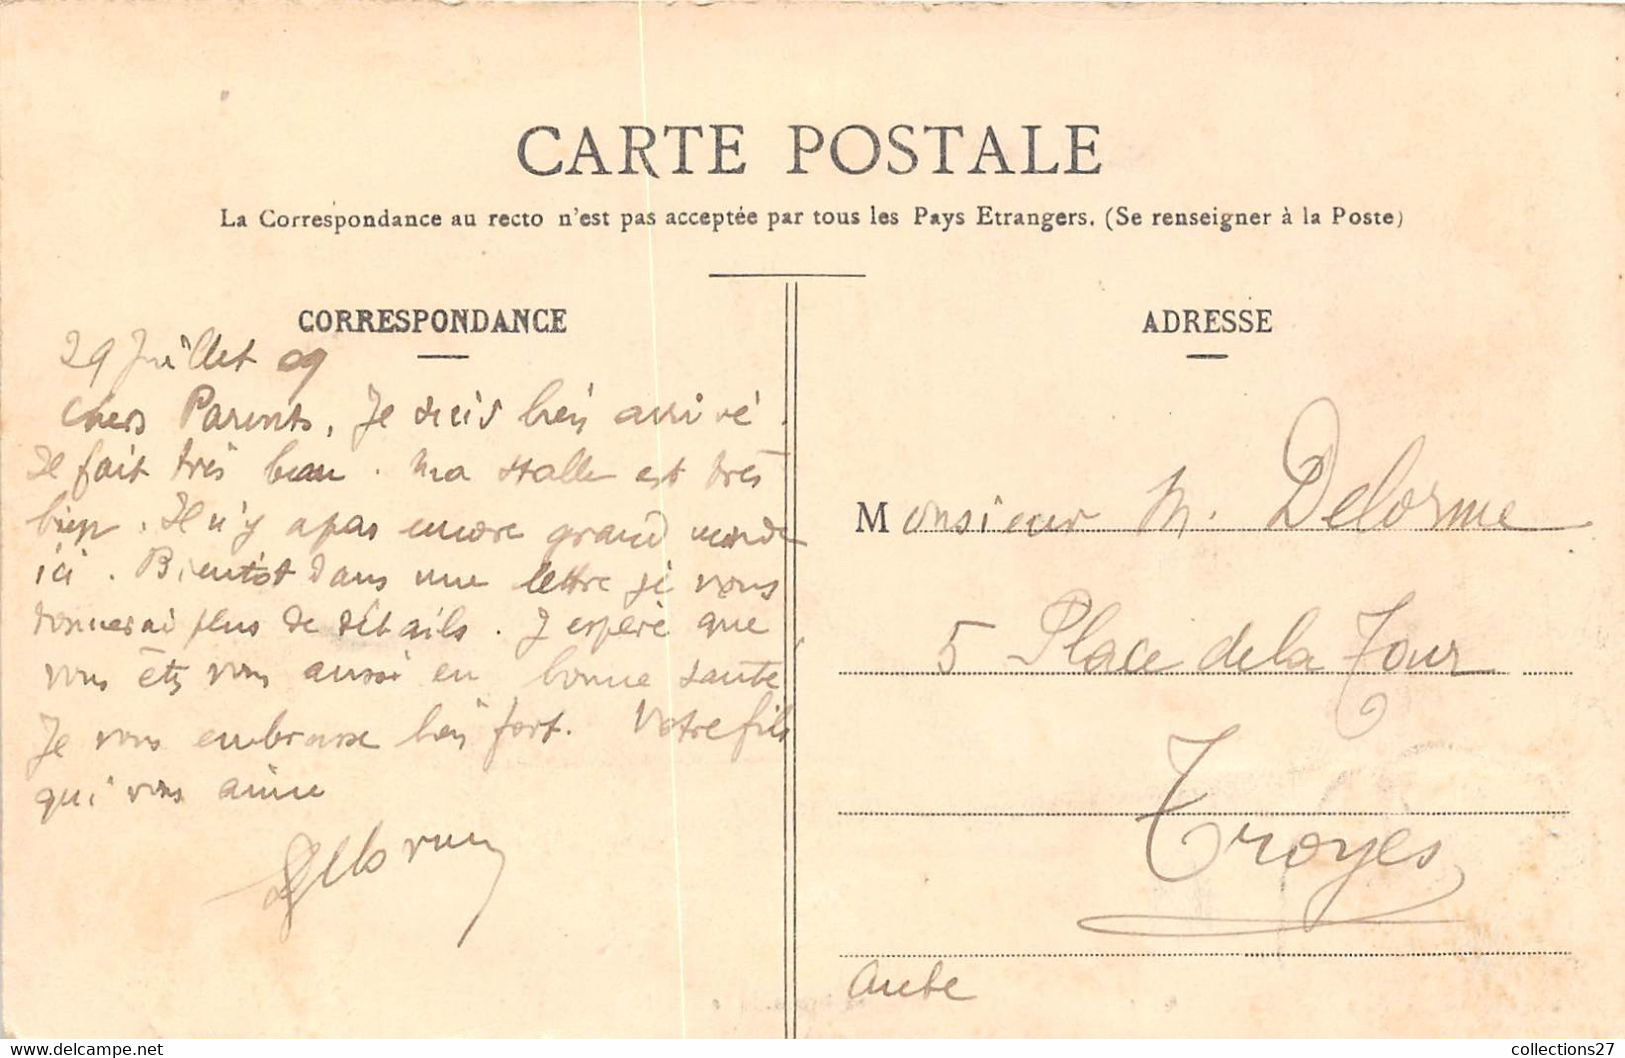 CARTE POSTALE
La Correspondance au recto n'est pas acceptée par tous les Pays Etrangers. (Se renseigner à la Poste)
CORRESPONDANCE
29 Juillet 09
Chers Parents, Je suis bien arrivé.
Il fait très beau. Ma stalle est très
bien. Il n'y a pas encore grand monde
ici. Bientôt dans une lettre je vous
donnerai plus de détails. J'espère que
vous êtes vous aussi en bonne santé
Je vous embrasse bien fort. Votre fils
qui vous aime
Delorme
ADRESSE
Monsieur M. Delorme
5 Place de la Tour
Troyes
Aube
collections27